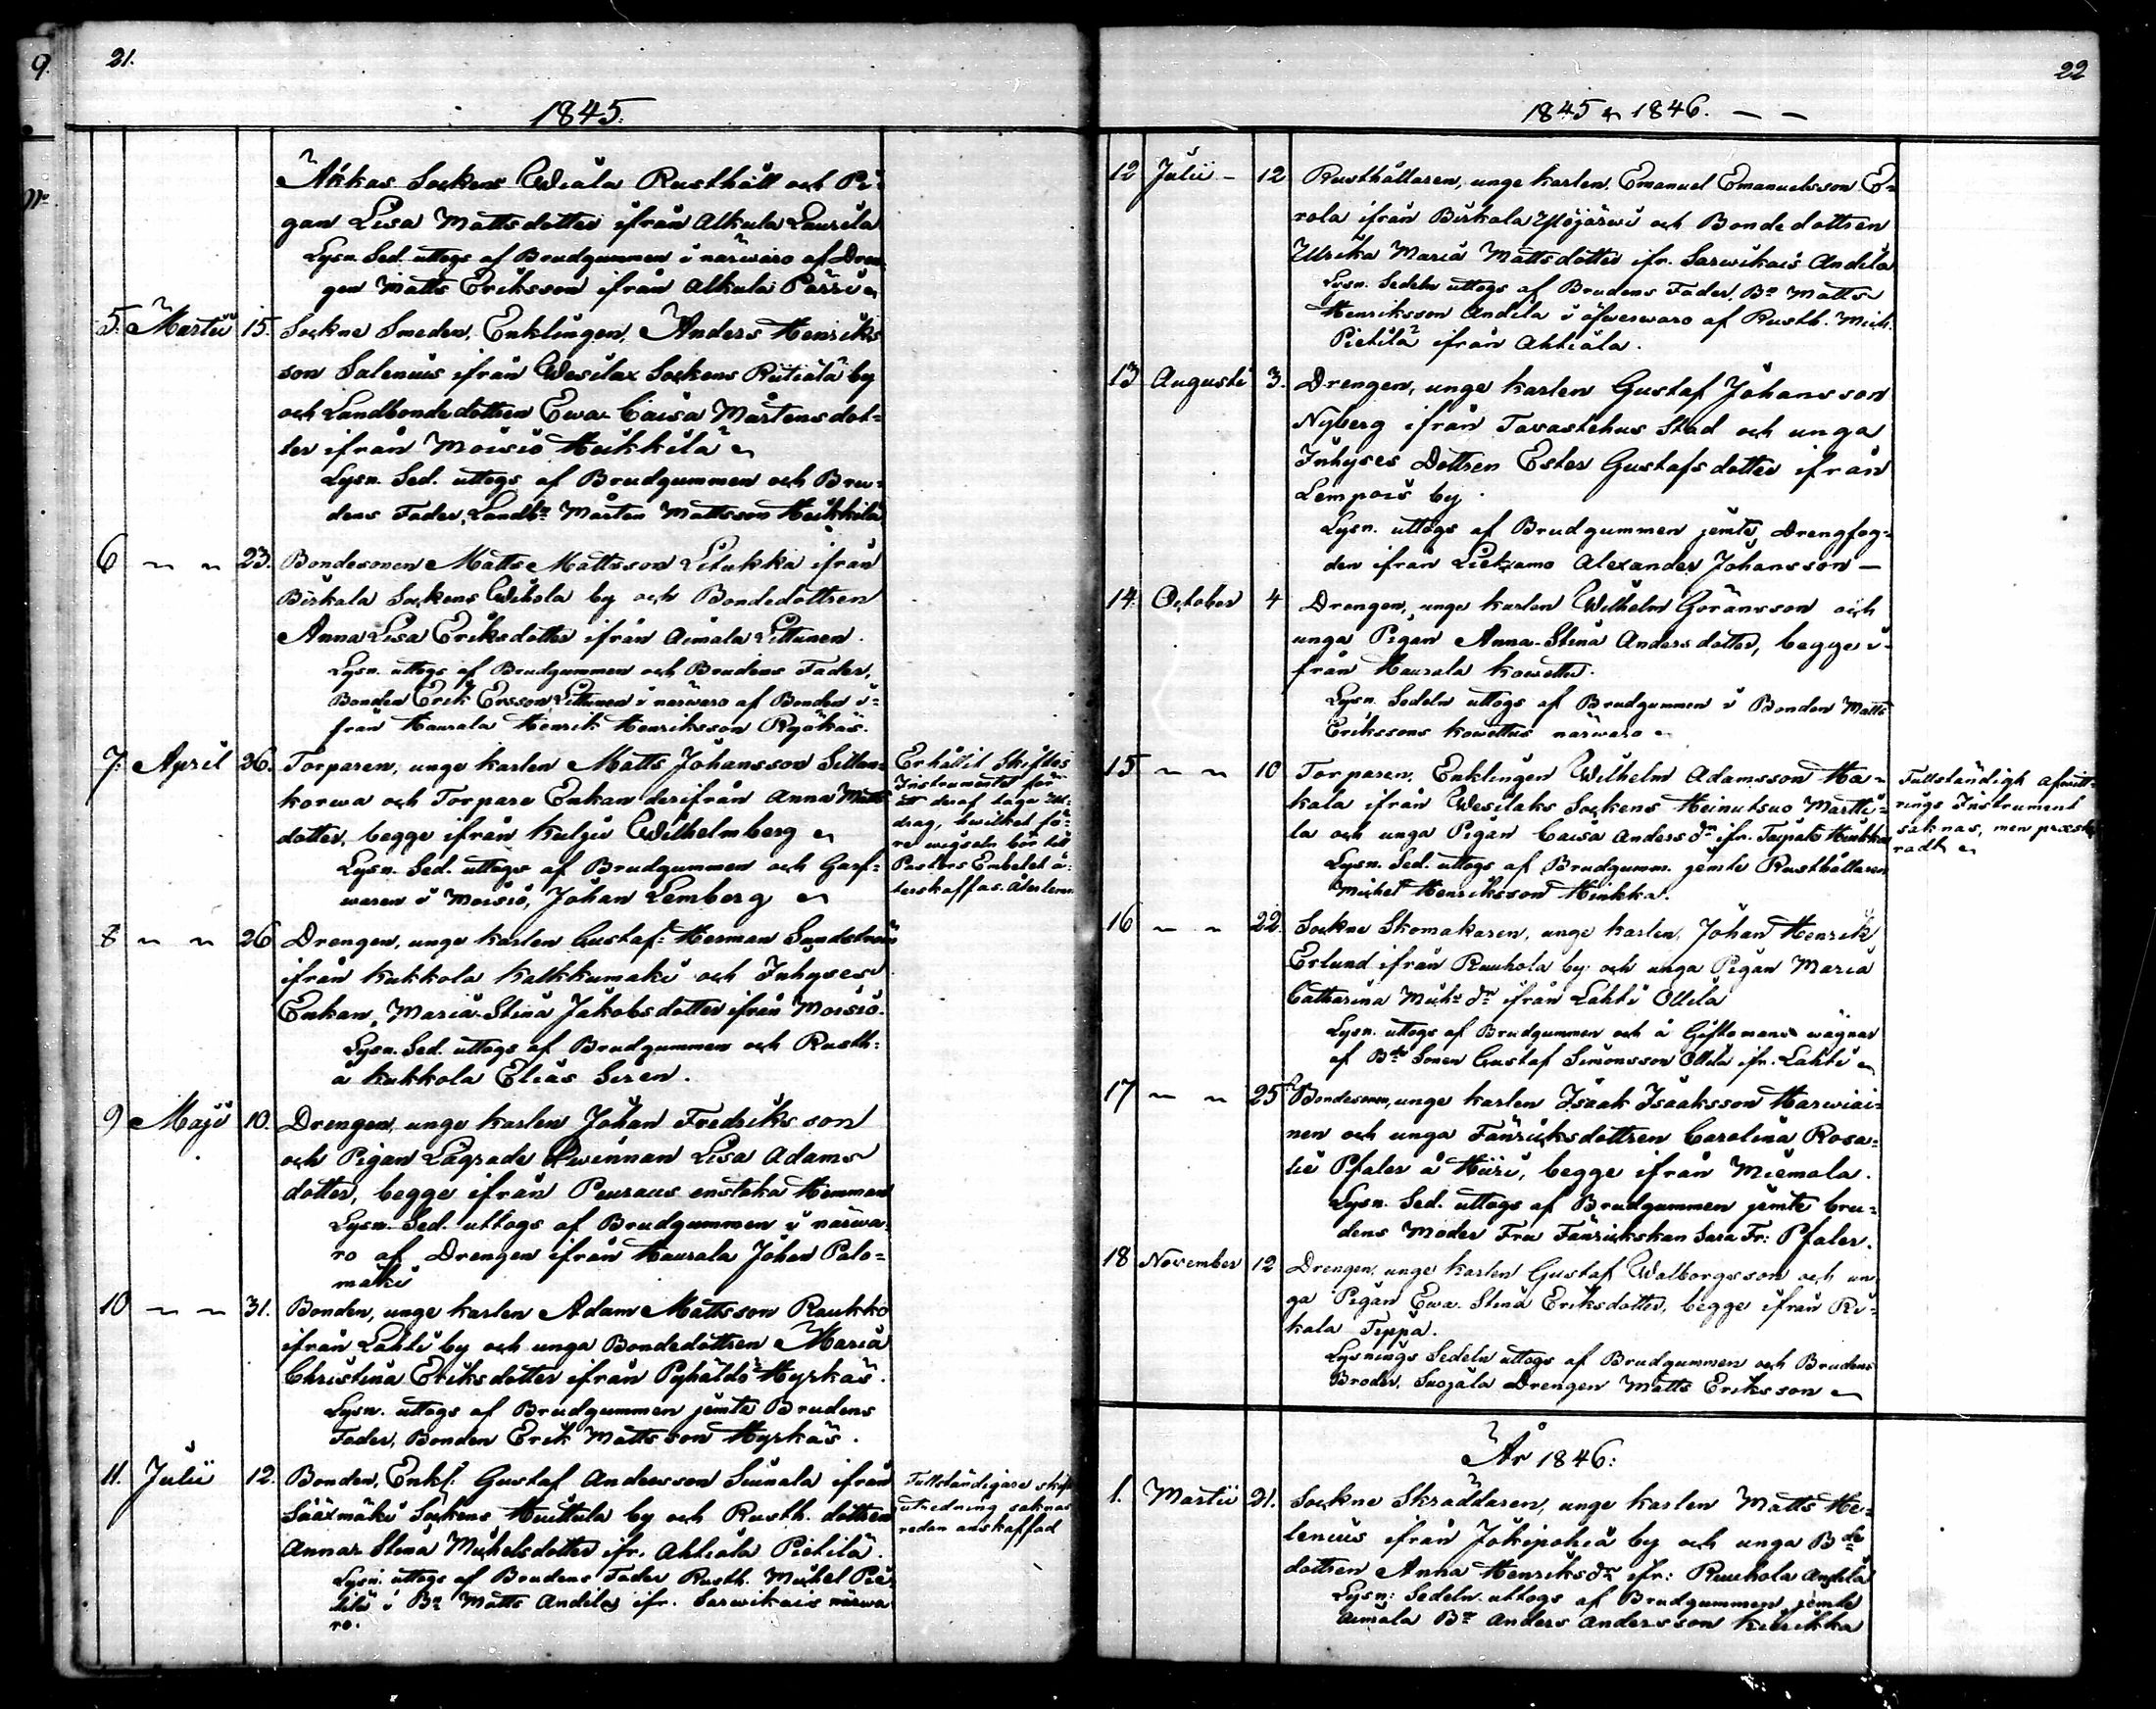 9.
21.
1845.
Akkas Sockens Wiala Rusthåll och Pi-
gan Lisa Mattsdotter ifrån Alkula Laurila
Lysn. Sed. uttogs af Brudgummen i närwaro af Dren-
gen Matts Eriksson ifrån Alkula Pärri
5. Martii 15. Sockne Smeden, Enklingen, Anders Henriks
son Salenius ifrån Wesilax Sockens Rutiala by
och Landbonde dottren Ewa Caisa Mårtensdot-
ter ifrån Moisio Heikkilä
Lysn. Sed. uttogs af Brudgummen och Bru-
dens Fader, Landb:n Mårten Mattsson Heikkilä
6 〃 〃 23. Bondesonen Matts Mattsson Litukka ifrån
Birkala Sockens Wihola by och Bondedottren
Anna Lisa Eriksdotter ifrån Aimala Littunen.
Lysn. uttogs af Brudgummen och Brudens Fader,
Bonden Erik Ersson Littunen i närwaro af Bonden i-
från Haurala Henrik Henriksson Ryökäs.
7. April 26. Torparen, unge karlen Matts Johansson Sillan-
korwa och Torpare Enkan derifrån Anna Matts
dotter, begge ifrån Kulju Wilhelmberg
Lysn. Sed. uttogs af Brudgummen och Garf-
waren i Moisio, Johan Lemberg
Erhållit Skiftes
Instrumentet för
att deraf taga Ut-
drag, hwilket fö-
re wigseln bör till
Pastors Embetet å-
terskaffas. Återlemn
8 〃 〃 26 Drengen, unge karlen Gustaf Herman Sundström
ifrån Kukkola Kalkkumäki och Inhyses
Enkan, Maria Stina Jakobsdotter ifrån Moisio.
Lysn. Sed. uttogs af Brudgummen och Rusth:
å Kukkola Elias Siren.
9 Maji 10. Drengen, unge karlen Johan Fredriksson
och Pigan Lägrade Qwinnan Lisa Adams
dotter, begge ifrån Peuraus enstaka Hemman
Lysn. Sed. uttogs af Brudgummen i närwa-
ro af Drengen ifrån Haurala Johan Palo-
mäki
10 〃 〃 31. Bonden, unge karlen Adam Mattsson Raukko
ifrån Lahti by och unga Bondedottren Maria
Christina Eriksdotter ifrån Pyhäldö Hyrkäs.
Lysn. uttogs af Brudgummen jemte Brudens
Fader, Bonden Erik Mattsson Hyrkäs.
11. Julii 12. Bonden, Enkl. Gustaf Andersson Sunala ifrån
Sääxmäki Sockens Huittula by och Rusth. dottren
Anna Stina Michelsdotter ifr. Ahtiala Pietilä.
Lysn. uttogs af Brudens Fader Rusth. Michel Pie-
tilä i B:n Matts Andila ifr. Sarwikais närwa
ro.
Fullständigare skift
utredning saknas
redan anskaffad
22
1845 〃 1846. — —
12 Julii - 12 Rusthållaren, unge karlen, Emanuel Emanuelsson E-
rola ifrån Birkala Ylöjärwi och Bondedottren
Ulrika Maria Mattsdotter ifr. Sarwikais Andila
Lysn. Sedeln uttogs af Brudens Fader, B:n Matts
Henriksson Andila i öfwerwaro af Rusth. Mich.
Pietilä ifrån Ahtiala.
13 Augusti 3. Drengen, unge karlen Gustaf Johansson
Nyberg ifrån Tavastehus Stad och unga
Inhyses Dottren Ester Gustafsdotter ifrån
Lempois by.
Lysn. uttogs af Brudgummen jemte Drengfog-
den ifrån Lieksamo Alexander Johansson —
14. October 4 Drengen, unge karlen Wilhelm Göransson och
unga Pigan Anna Stina Andersdotter, begge i-
från Haurala Kowettu.
Lysn. Sedeln uttogs af Brudgummen i Bonden Matts
Erikssons Kowettus närwaro
15 〃 〃 10 Torparen, Enklingen Wilhelm Adamsson Ha-
kala ifrån Wesilaks Sockens Heinutsuo Martti-
la och unga Pigan Caisa Anders d:r ifr. Taipale Hinkka
Lysn. Sed. uttogs af Brudgumm. jemte Rusthållaren
Michel Henriksson Hinkka.
Fullständigt afwitt-
rings Instrument
saknas, men præste-
radt
16 〃 〃 22. Sockne Skomakaren, unge karlen, Johan Henrik
Erlund ifrån Ruuhola by och unga Pigan Maria
Catharina Mich: d:r ifrån Lahti Ollila
Lysn. uttogs af Brudgummen och å Giftomans wägnar
af B:de Sonen Gustaf Simonsson Ollila ifr. Lahti
17 〃 〃 25 Bondesonen, unge karlen Isaak Isaaksson Harwiai-
nen och unga Fänricksdottren Carolina Rosa-
lie Pfaler å Hiiri, begge ifrån Miemola.
Lysn. Sed. uttogs af Brudgummen jemte bru-
dens Moder Fru Fänrickskan Sara Fr: Pfaler.
18 November 12 Drengen, unge karlen Gustaf Walborgsson och un
ga Pigan Ewa Stina Eriksdotter, begge ifrån Ri-
kala Teppa.
Lysnings Sedeln uttogs af Brudgummen och Brudens
Broder, Suojala Drengen Matts Eriksson
År 1846:
1. Martii 21. Sockne Skräddaren, unge karlen Matts He-
lenius ifrån Jokipohia by och unga B:de
dottren Anna Henriks d:r ifr: Ruuhola Andila
Lysn: Sedeln uttogs af Brudgummen jemte
Aimala B:n Anders Andersson Kiirikka